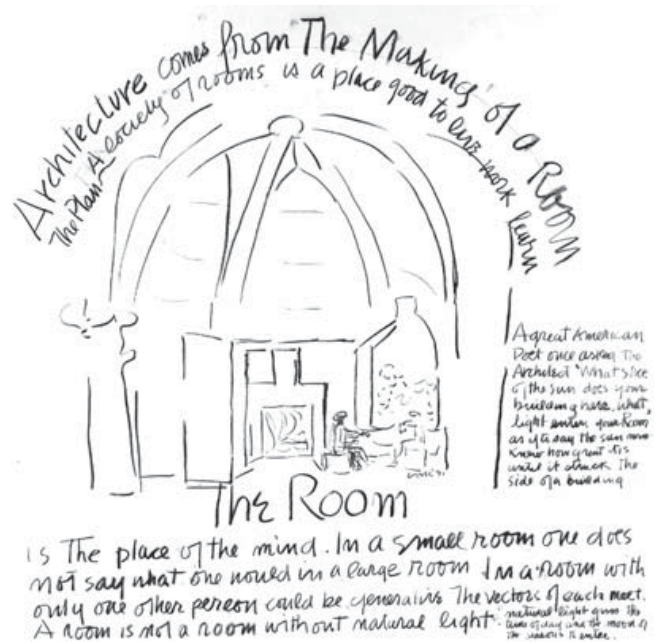 Architecture comes from The Making of a Room
The Plan A society of rooms is a place good to live work learn
A great American
Poet once asked The
Architect What slice
of the sun does your
building have, what
light enters your Room
as if to say the sun never
knew how great it is
until it struck The
side of a building
The Room
is The place of the mind. In a small room one does
not say what one would in a large room In a room with
only one other person could be generative The vectors of each meet.
A room is not a room without natural light natural light gives the
time of day and the mood of
the seasons to enter.